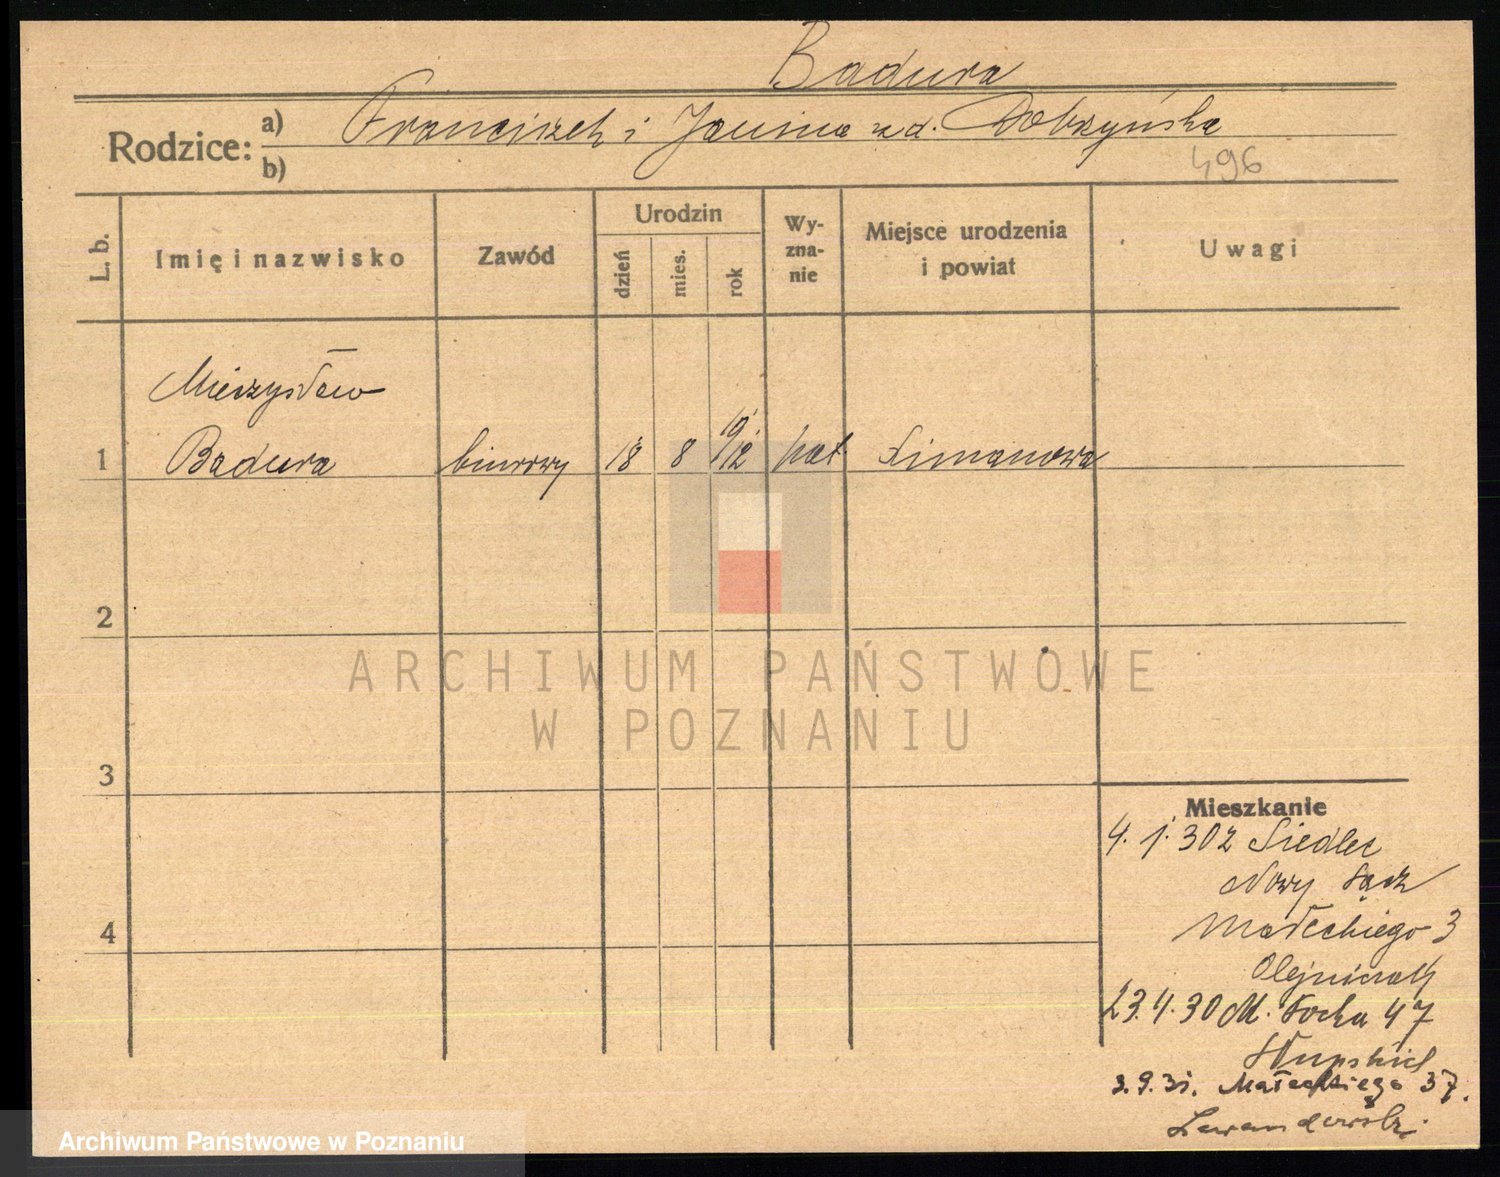 Badura
Rodzice:
a) Franciszek i Janina z d. Dobrzyńska
b)
496
L. b.
Imię i nazwisko
Zawód
Urodzin
dzień
mies.
rok
Wy-
zna-
nie
Miejsce urodzenia
i powiat
Uwagi
Mieczysław
1 Badura biurowy 18 8 1912 kat. Limanowa
2
3
4
ARCHIWUM PAŃSTWOWE
W POZNANIU
Mieszkanie
4. 1. 30 z Siedlec
Nowy Sącz
Małeckiego 3
Olejniczak
23.4.30 M. Focha 47
Słupski
3.9.31. Małeckiego 37.
Lewandowski
Archiwum Państwowe w Poznaniu